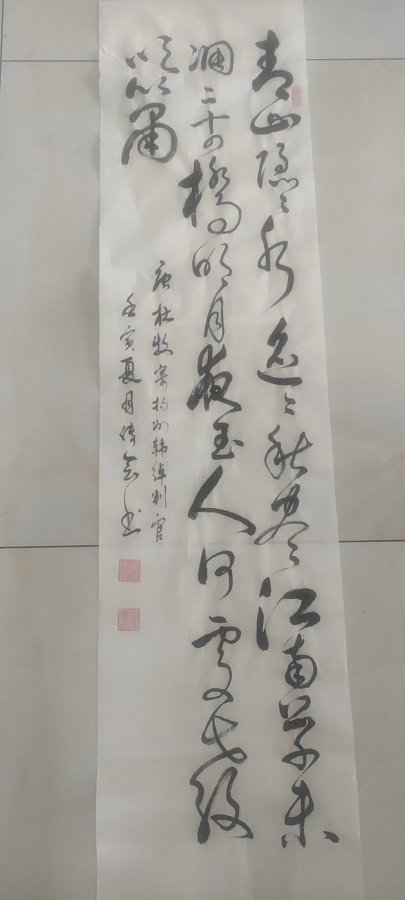 青山隐々水迢々秋尽江南草未
凋二十四橋明月夜玉人何處教
吹箫
唐杜牧寄扬州韩绰判官
壬寅夏月 书